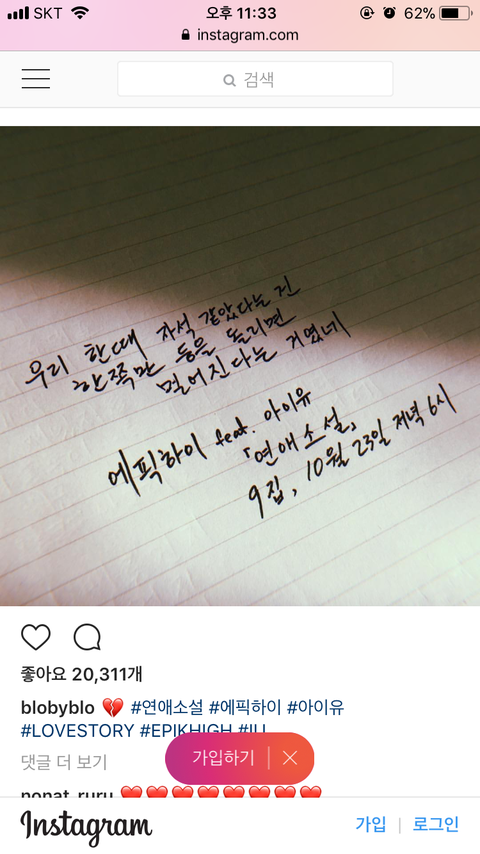 SKT 오후 11:33 62%
instagram.com
검색
우리 한때 자석 같았다는 건
한쪽만 등을 돌리면
멀어진다는 거였네
에픽하이 feat. 아이유
「연애소설」
9집, 10월 23일 저녁 6시
좋아요 20,311개
blobyblo 💔 #연애소설 #에픽하이 #아이유
#LOVESTORY #EPIKHIGH #IU
댓글 더 보기
가입하기
nonat_ruru ❤️❤️❤️❤️❤️❤️❤️❤️
Instagram 가입 | 로그인